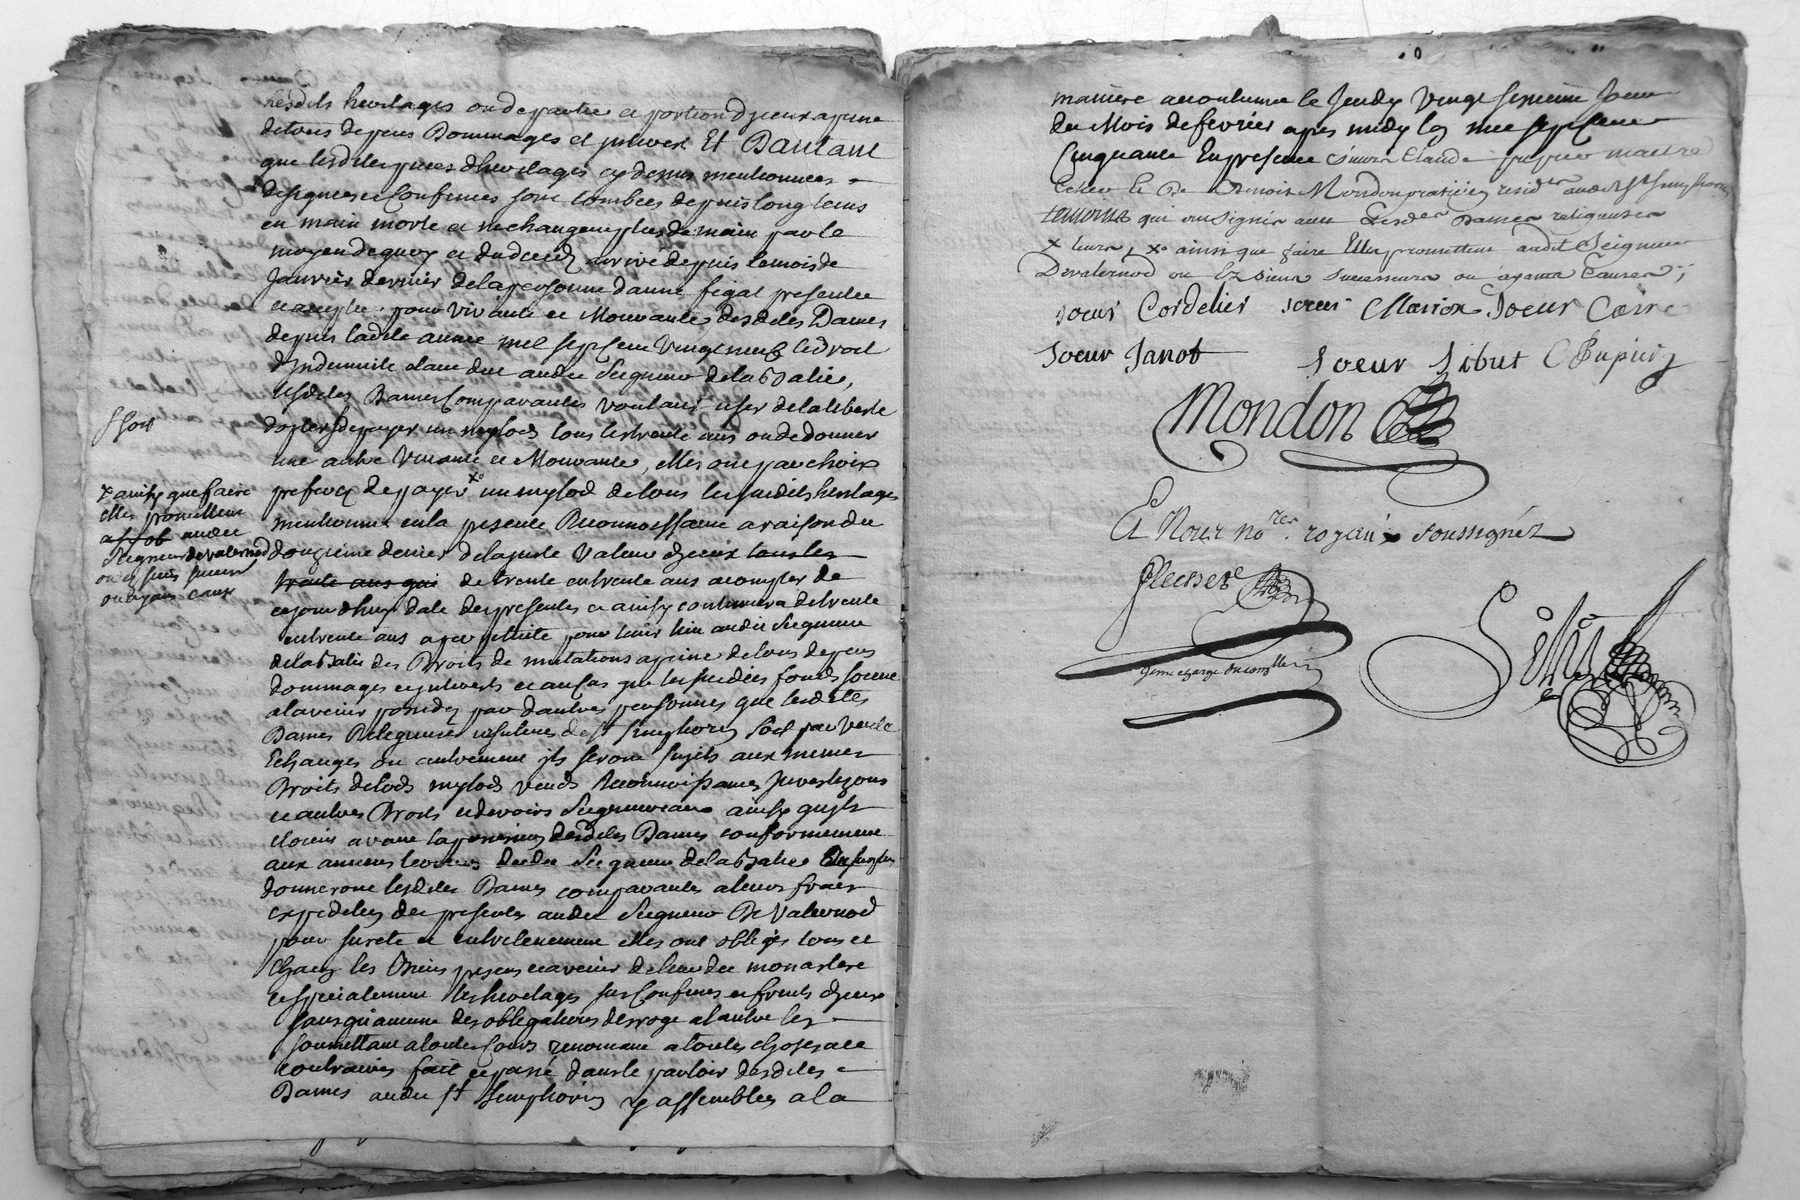 desdits heritages ou de partie et portion d'yceux a peine
de tous depens Dommages et interest Et D'autant
que lesdites pieces d'heritages cy dessus mentionnées
designées et Confinées sont tombées depuis long tems
en main morte et ne changeront plus de main par le
moyen de quoy et du decedz arrivé depuis le mois de
Janvier dernier de la personne d'anne figat presentée
et acceptée pour vivante et Mourante desdites Dames
depuis ladite année mil sept cent vingt neuf le droit
d'Indemnité étant due audit Seigneur de la
lesdites Dames Comparantes voulant user de la liberté
d'opter de payer un mylods tous les trente ans ou de donner
une autre vivante et Mourante, elles ont par choix
preferez de payer x un mylod de tous les susdits heritages
mentionnés en la presente Reconnoissance a raison du
douzieme denier de la juste valeur d'yceux tous les
trente ans qui de trente en trente ans a compter de
cejourdhuy date des presentes et ainsy continuera de trente
en trente ans a perpetuité pour tenir lieu audit Seigneur
de la des Droits de mutations a peine de tous depens
dommages et interests et au cas que les susdits fonds soient
a l'avenir possedez par d'autres personnes que lesdites
Dames Religieuses ursulines de St Simphorien soit par vente
Echanges ou autrement ils seront sujets aux memes
Droits de lods mylods vends Reconnoissances Investizons
et autres Droits et devoirs Seigneuriaux ainsy qu'ils
etoient avant la possession desdites Dames conformement
aux anciens terriers dudit Seigneur de la
donneront lesdites Dames comparantes a leurs frais
expeditions des presentes audit Seigneur De Valernod
pour sureté et entretenement elles ont obligés tous et
Chacun les Biens presens et avenir de leurdit monastere
et specialement lesheritages sus Confinés et fruits d'yceux
sans qu'aucune des obligations deroge a l'autre les
soumettant a toutes Cours renoncant a toutes choses a ce
contraires fait et passé dans le parloir desdites
Dames audit St Simphorien y assemblées a la
x ainsy que faire
elles promettent
audit
Seigneur de valernod
ou es siens successeurs
ou ayans cause
maniere accoutumée le Jeudy vingt sixieme Jour
du Mois de fevrier apres midy l'an mil sept cent
Cinquante En presence de sieurs Claude maitre
Benoist Mondon praticien resid.ts audit St Simphorien
temoins qui ont signés avec Lesd.tes Dames religieuses
x ainsi que faire Elles promettent audit Seigneur
Devalernod ou Ez siens successeurs ou ayants Causes;
soeur Cordelier soeur Marion Soeur Carre
soeur Janot Soeur Sibut C Dupuiz
Mondon
Et Nous no.res royaux soussignéz